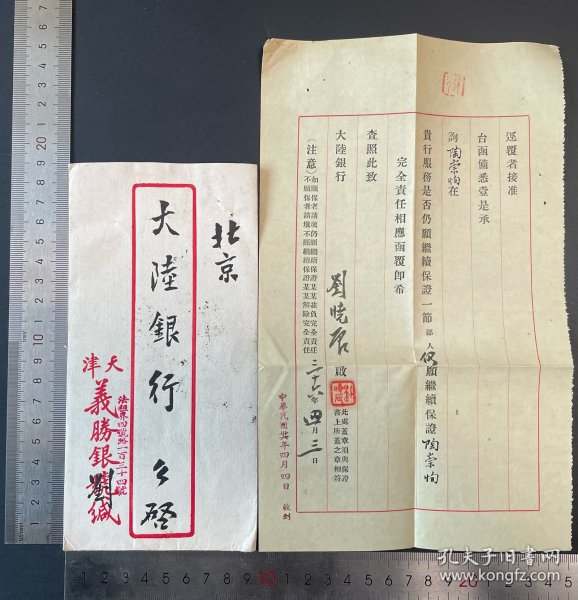 北京
大陸銀行 公啓
天津
法租界四號路一百三十四號
義勝銀號緘
劉
逕覆者接准
台函備悉壹是承
詢陶崇恂在
貴行服務是否仍願繼續保證一節鄙人仍願繼續保證陶崇恂
完全責任相應函覆即希
查照此致
大陸銀行
劉曉居 啟
此處蓋章須與保證
書上所蓋之章相符
(注意)如願保者請填仍願繼續保證某某並負完全責任
不願保者請填不願繼續保證某某解除完全責任
二十六年四月三日
中華民國廿六年四月四日收到
孔夫子旧书网
www.kongfz.com